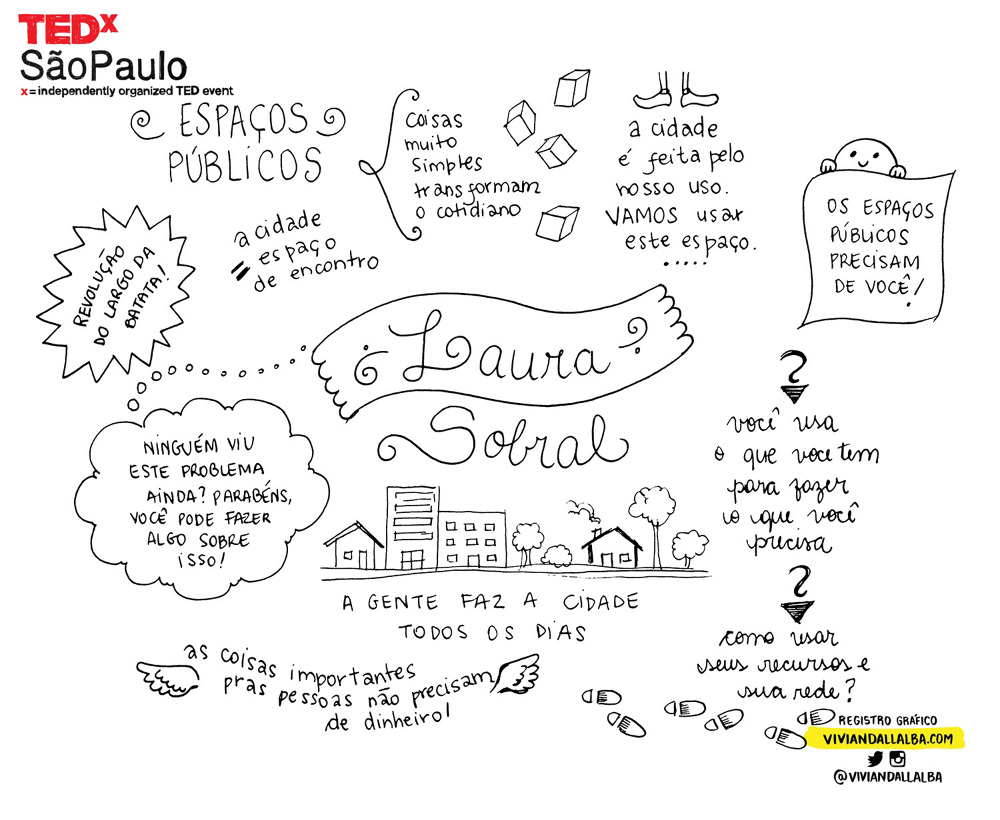 TEDx
SãoPaulo
x=independently organized TED event
ESPAÇOS
PÚBLICOS
coisas
muito
simples
transformam
o cotidiano
a cidade
é feita pelo
nosso uso.
VAMOS usar
este espaço.
.....
OS ESPAÇOS
PÚBLICOS
PRECISAM
DE VOCÊ!
a cidade
= espaço
de encontro
REVOLUÇÃO
DO LARGO DA
BATATA!
Laura
Sobral
NINGUÉM VIU
ESTE PROBLEMA
AINDA? PARABÉNS,
VOCÊ PODE FAZER
ALGO SOBRE
ISSO!
?
você usa
o que voce tem
para fazer
o que você
precisa
?
como usar
seus recursos e
sua rede?
A GENTE FAZ A CIDADE
TODOS OS DIAS
as coisas importantes
pras pessoas não precisam
de dinheiro!
REGISTRO GRÁFICO
VIVIANDALLALBA.COM
@VIVIANDALLALBA